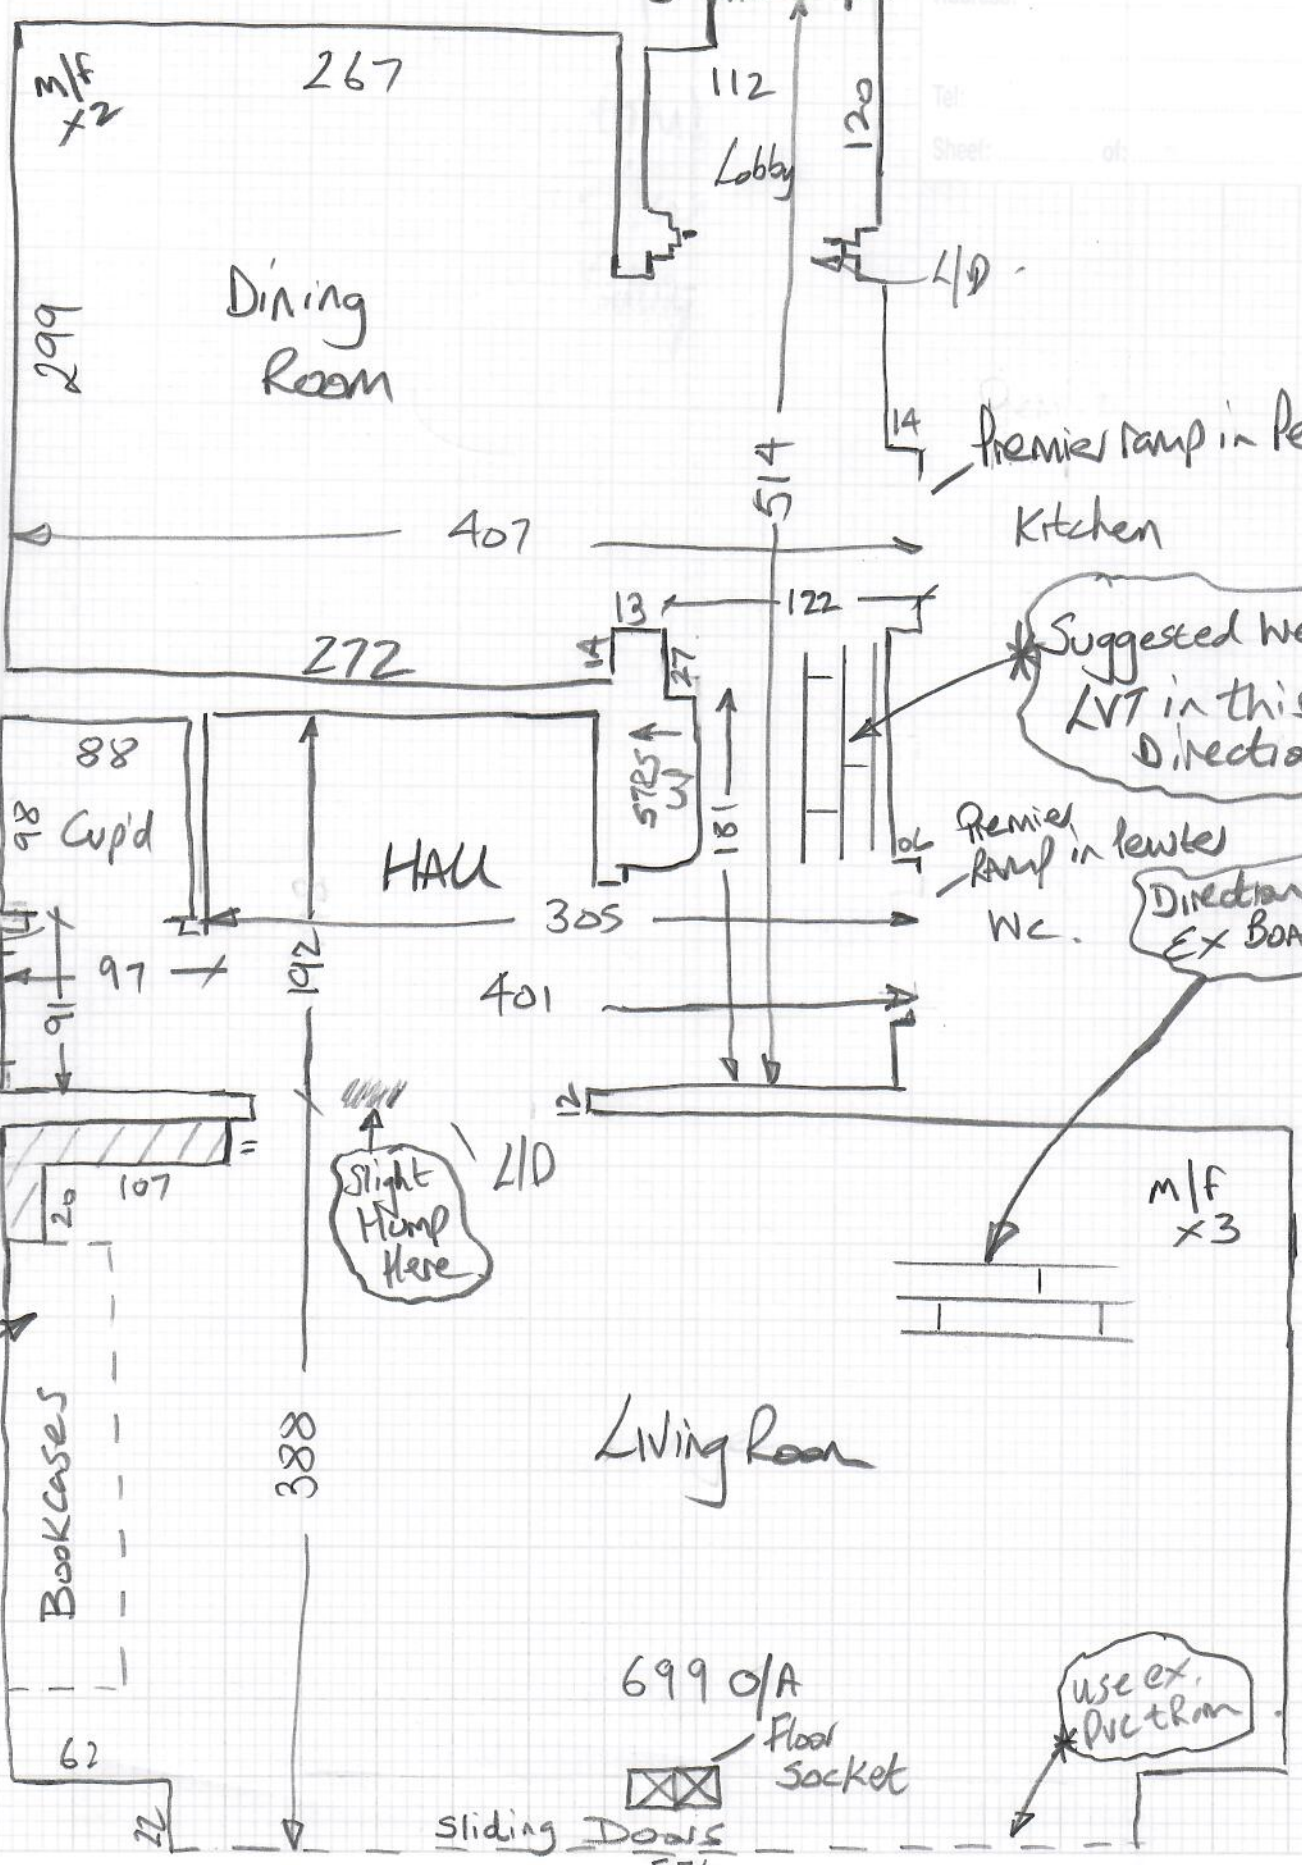 Tel:
Sheet: of:
m/f
x2
267
112
120
Lobby
L/D
Dining
Room
299
14
Premier ramp in Pe
Kitchen
514
407
13
122
14
27
272
Suggested We
LVT in this
Directio
88
98
Cup'd
STRS
181
HALL
Premier
RAMP in Pewter
WC.
Direction
EX BOA
305
97
91
192
401
12
L/D
Slight
Hump
Here
107
20
11
m/f
x3
Bookcases
388
Living Room
699 O/A
Floor
Socket
use ex.
PVC tRim
62
22
Sliding Doors